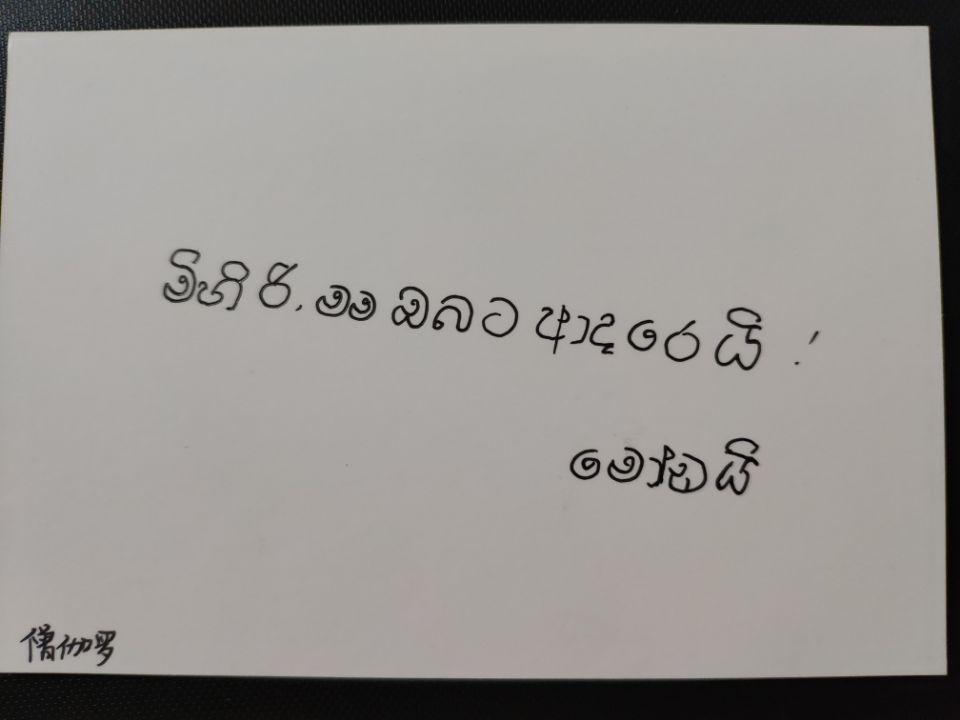 මිහිරි, මම ඔබට ආදරෙයි!
මොඹයි
僧伽罗